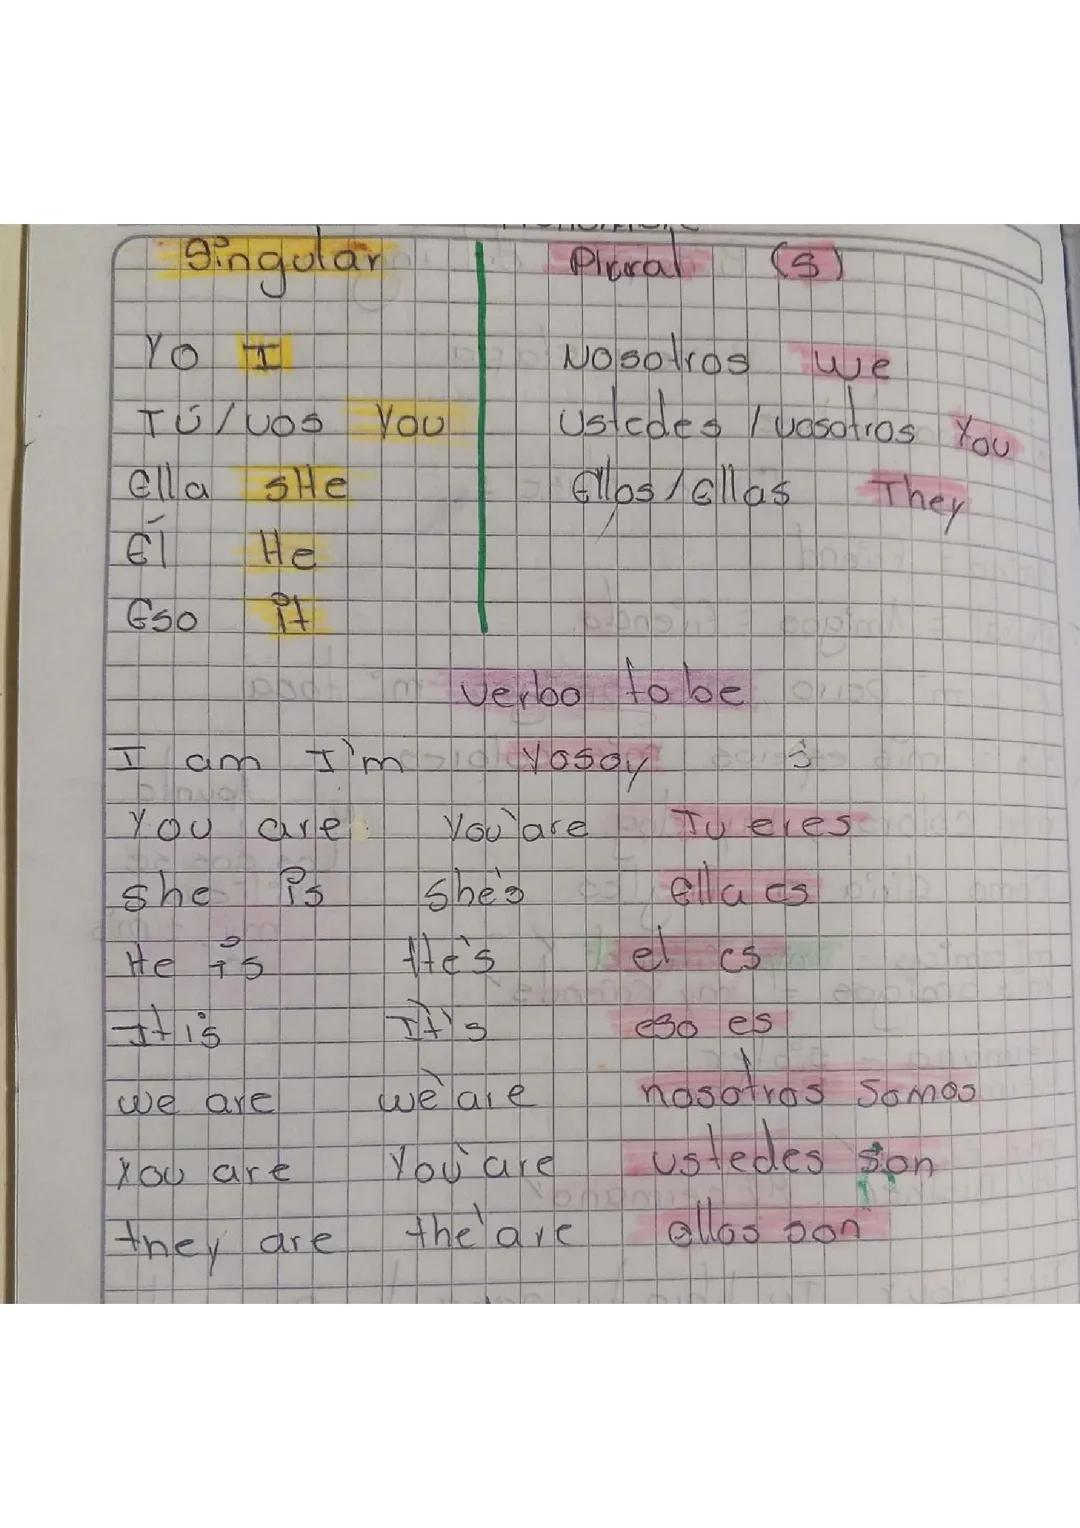 Singular Plural (s)
Yo I Nosotros we
Tú/vos You ustedes / vosotros You
Ella sHe Ellos/Ellas They
Él He
Eso it
verbo to be
I am I'm Yo soy
You are You'are Tu eres
she is she's ella es
He is He's el es
It is It's eso es
we are we'are nosotros somos
You are You'are ustedes son
they are the'are ellos son